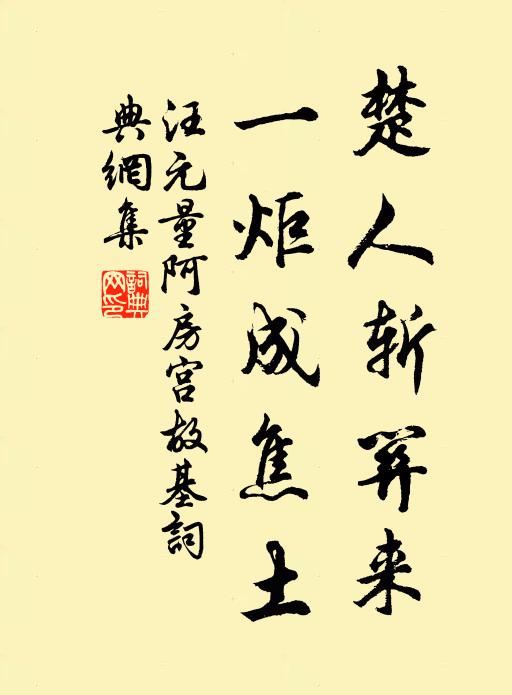 楚人斩关来
一炬成焦土
汪元量阿房宫故基詞
典網集
詞典網印